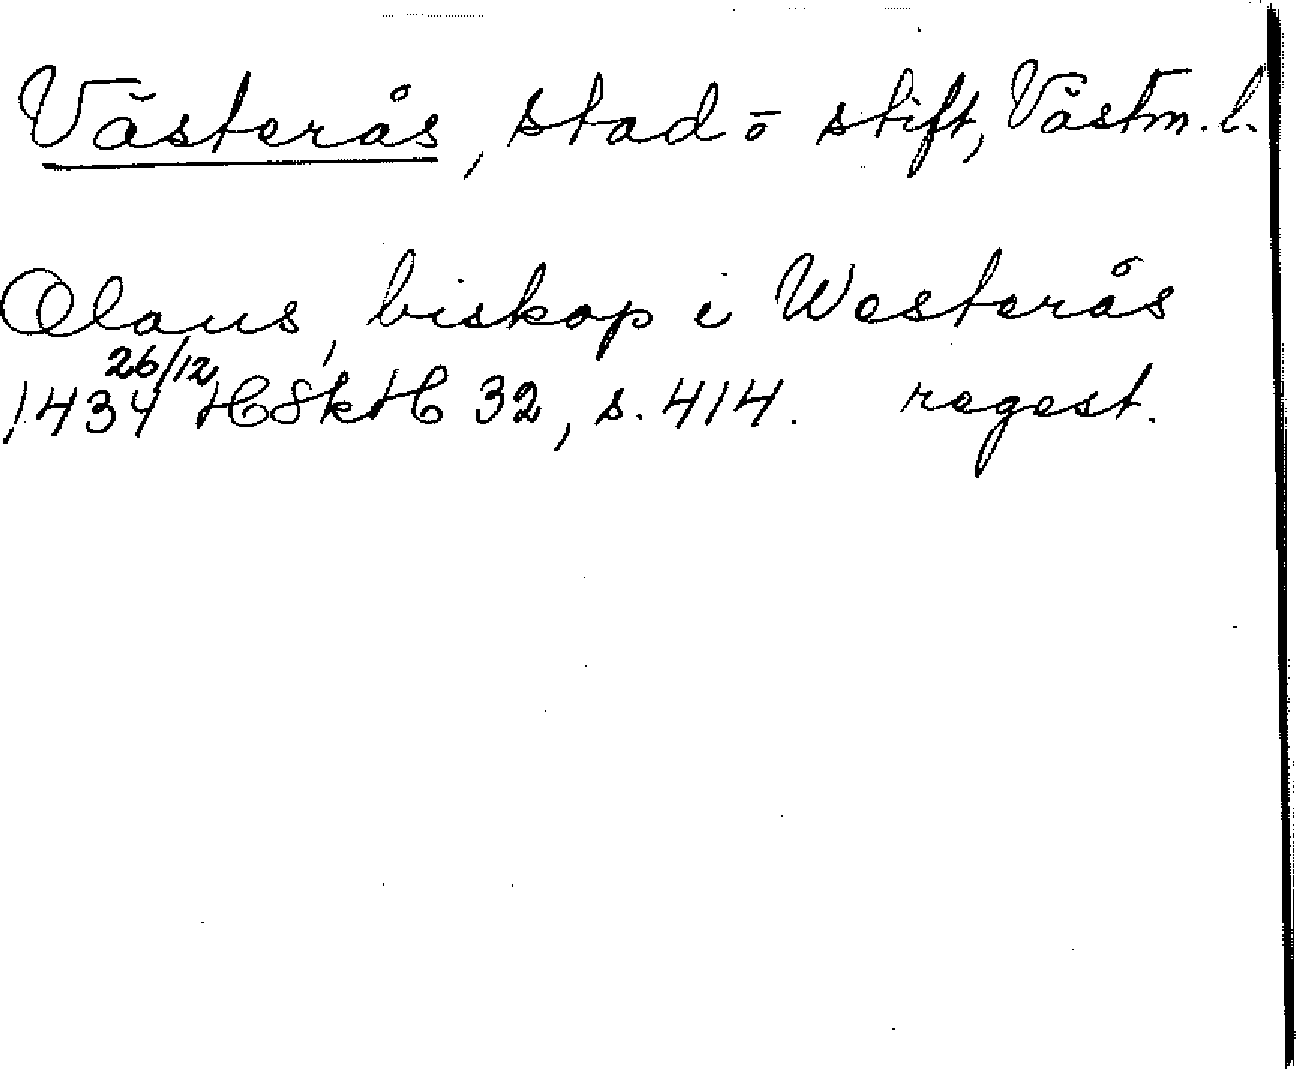 Västerås, stad ō stift, Västm. l.
Olaus, biskop i Westerås
1434 26/12 HSkH 32, s. 414. regest.